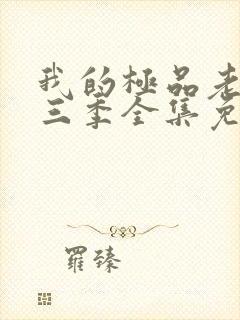 我的極品老
三季全集免
羅臻